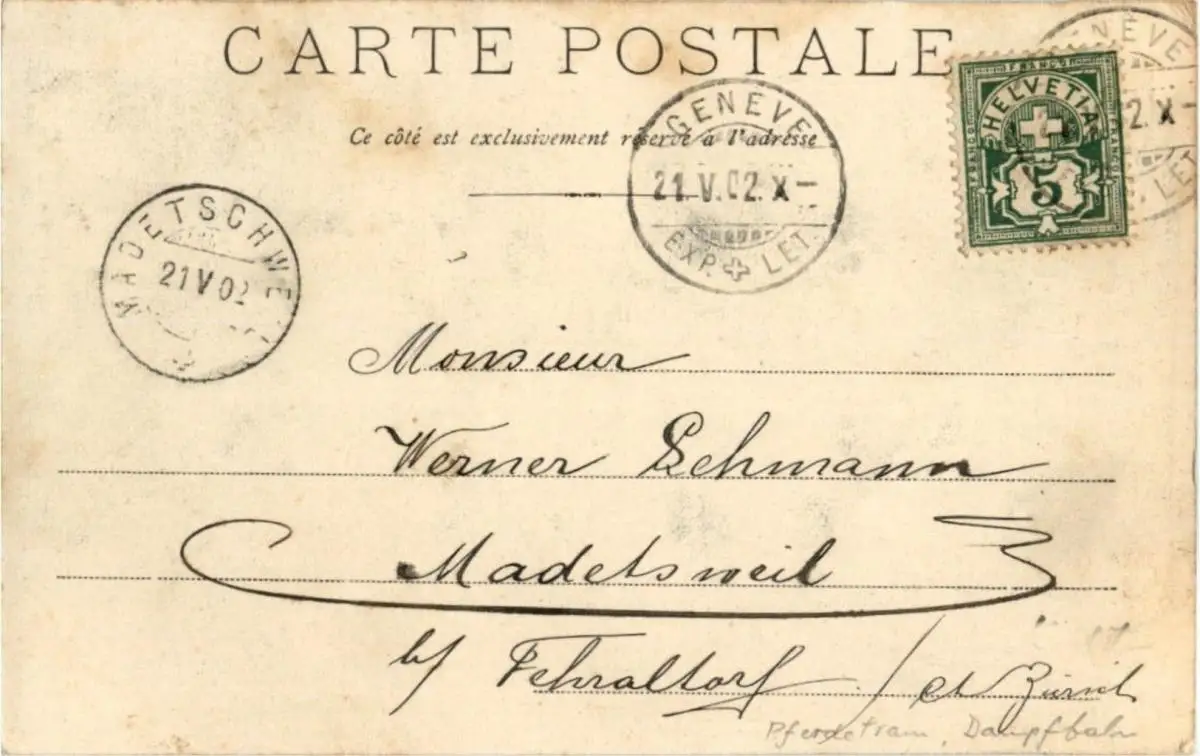 CARTE POSTALE
Ce côté est exclusivement réservé à l'adresse
GENEVE
21.V.02.X-
EXP. LET.
FRANCO
HELVETIA
FRANCO
FRANCO
5
GENEVE
02.X-
LET.
MADETSCHWE
21 V 02
Monsieur
Werner Lehmann
Madetsweil
b/ Fehraltorf / Ct Zürich
Pferdetram, Dampfbahn